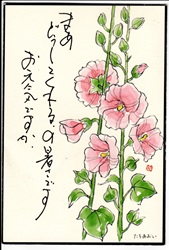 まあ
どうしてくれるの暑さです
お元気ですか。
たちあおい